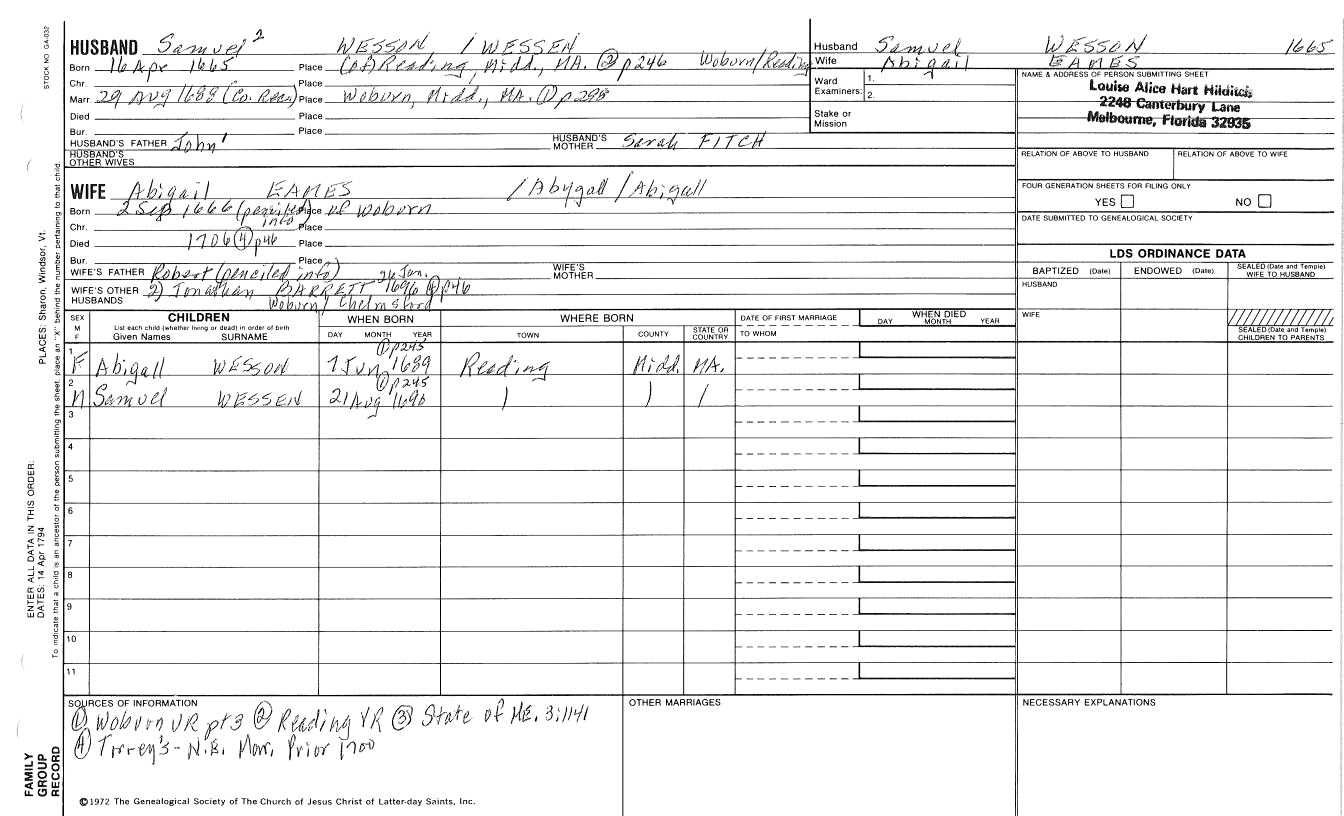 STOCK NO GA-032
HUSBAND Samuel 2 WESSON / WESSEN
Born 16 Apr 1665 Place (of) Reading, Midd., MA. ② p246 Woburn/Reading
Chr. Place
Marr 29 Aug 1688 (Co. Rec.) Place Woburn, Midd., MA. ① p298
Died Place
Bur. Place
HUSBAND'S FATHER John 1 HUSBAND'S MOTHER Sarah FITCH
HUSBAND'S OTHER WIVES
Husband Samuel WESSON 1665
Wife Abigail EAMES
Ward Examiners: 1.
2.
Stake or Mission
NAME & ADDRESS OF PERSON SUBMITTING SHEET
Louise Alice Hart Hilditch
2248 Canterbury Lane
Melbourne, Florida 32935
RELATION OF ABOVE TO HUSBAND RELATION OF ABOVE TO WIFE
FOUR GENERATION SHEETS FOR FILING ONLY
YES NO
DATE SUBMITTED TO GENEALOGICAL SOCIETY
WIFE Abigail EAMES / Abygall / Abigall
Born 2 Sep 1666 (penciled info) Place of Woburn
Chr. Place
Died 1706 ④ p46 Place
Bur. Place
WIFE'S FATHER Robert (penciled info) WIFE'S MOTHER
WIFE'S OTHER HUSBANDS 2) Jonathan BARRETT 26 Jan. 1696 ④ p46
Woburn / Chelmsford
LDS ORDINANCE DATA
BAPTIZED (Date) ENDOWED (Date) SEALED (Date and Temple) WIFE TO HUSBAND
HUSBAND
WIFE
SEALED (Date and Temple) CHILDREN TO PARENTS
SEX M F CHILDREN WHEN BORN WHERE BORN DATE OF FIRST MARRIAGE WHEN DIED
List each child (whether living or dead) in order of birth
Given Names SURNAME DAY MONTH YEAR TOWN COUNTY STATE OR COUNTRY TO WHOM DAY MONTH YEAR
① p245
1 F Abigall WESSON 7 Jun 1689 Reading Midd. MA.
① p245
2 M Samuel WESSEN 21 Aug 1690 ) ) /
3
4
5
6
7
8
9
10
11
SOURCES OF INFORMATION
① Woburn VR pt 3 ② Reading VR ③ State of ME. 3:1141
④ Torrey's - N.E. Marr. Prior 1700
OTHER MARRIAGES
NECESSARY EXPLANATIONS
©1972 The Genealogical Society of The Church of Jesus Christ of Latter-day Saints, Inc.
FAMILY GROUP RECORD
ENTER ALL DATA IN THIS ORDER:
DATES: 14 Apr 1794 PLACES: Sharon, Windsor, Vt.
To indicate that a child is an ancestor of the person submitting the sheet, place an "X" behind the number pertaining to that child.